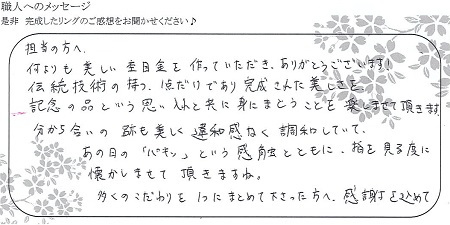 職人へのメッセージ
是非 完成したリングのご感想をお聞かせください♪
担当の方へ、
何よりも美しい杢目金を作っていただき、ありがとうございます!
伝統技術の持つ、1点だりであり完成された美しさを
記念の品という思い入れと共に身にまとうことを楽しませて頂きます
分かち合いの跡も美しく違和感なく調和していて、
あの日の「パキン」という感触とともに、指を見る度に
懐かしませて頂きますね。
多くのこだわりを1つにまとめて下さった方へ、感謝を込めて